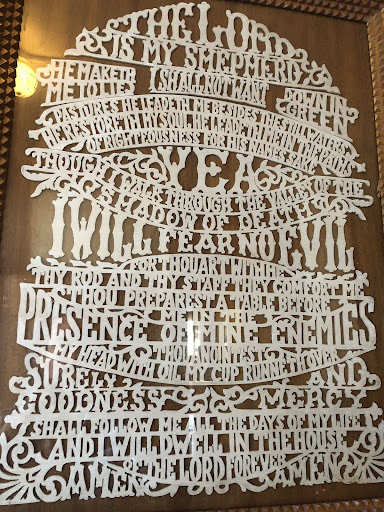 THE LORD
IS MY SHEPHERD
I SHALL NOT WANT
HE MAKETH
ME TO LIE
DOWN IN
GREEN
PASTURES HE LEADETH ME BESIDES THE STILL WATERS
HE RESTORETH MY SOUL HE LEADETH ME IN THE PATHS
OF RIGHTEOUSNESS FOR HIS NAMES SAKE
YEA
THOUGH I WALK THROUGH THE VALLEY OF THE
SHADOW OF DEATH
I WILL FEAR NO EVIL
FOR THOU ART WITH ME
THY ROD AND THY STAFF THEY COMFORT ME
THOU PREPAREST A TABLE BEFORE
ME IN THE
PRESENCE OF MIN ENEMIES
THOU ANOINTEST
MY HEAD WITH OIL MY CUP RUNNETH OVER
SURELY AND
GOODNESS MERCY
SHALL FOLLOW ME ALL THE DAYS OF MY LIFE
AND I WILL DWELL IN THE HOUSE
OF THE LORD FOREVER
AMEN AMEN